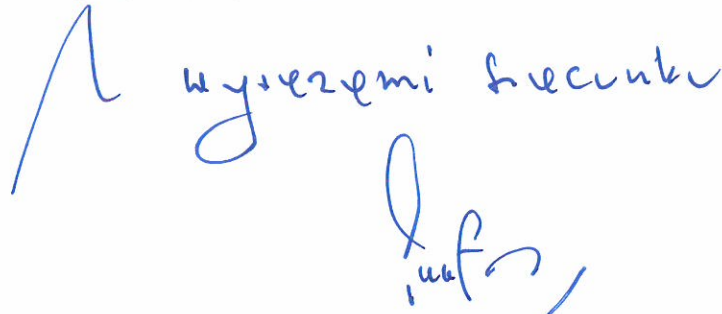 z wyrazami szacunku